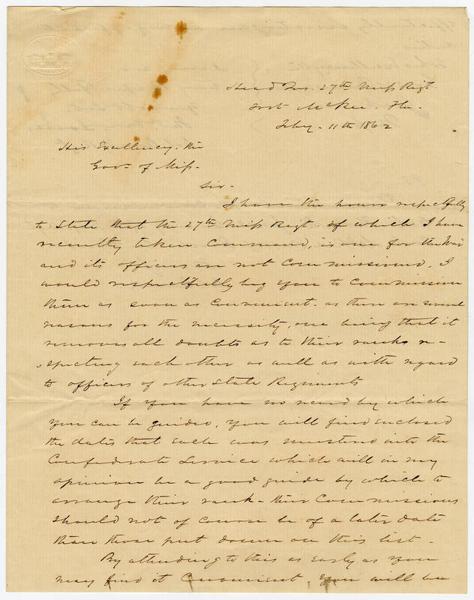 Head Qrs. 27th Miss Regt
Fort McRee. Fla.
Feby. 11th 1862
His Excellency. the
Govr. of Miss.
Sir.
I have the honor respectfully
to State that the 27th Miss Regt of which I have
recently taken Command, is one for the War
and its officers are not Commissioned. I
would respectfully beg you to Commission
them as soon as Convenient. as there are several
reasons for the necessity, one being that it
removes all doubts as to their ranks re-
specting each other as well as with regard
to officers of other State Regiments
If you have no record by which
you can be guided, you will find enclosed
the dates that each was mustered into the
Confederate Service which will in my
opinion be a good guide by which to
arrange their rank. their Commissions
should not of course be of a later date
than those put down on this list.
By attending to this as early as you
may find it Convenient, you will be